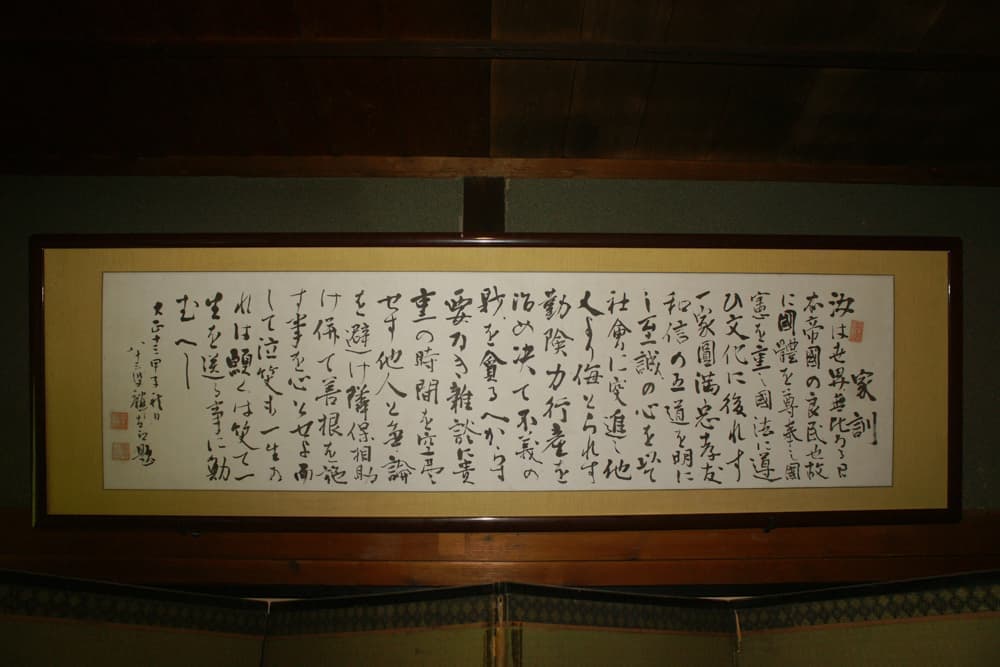 家訓
汝は世界無比なる日
本帝國の良民也故
に國體を尊奉し國
憲を重し國法に遵
ひ文化に後れす
一家圓滿忠孝友
和信の五道を明に
し至誠の心を以て
社會に突進し他
人より侮とられす
勤険力行産を
治め决て不義の
財を貪るへからす
要力き雑談に貴
重の時間を空費
せす他人と無論
を避け隣保相助
け併て善根を施
す事を心とせよ而
して泣笑も一生の
れは願くは笑て一
生を送る事に勉
むへし
大正十三甲子
八十三